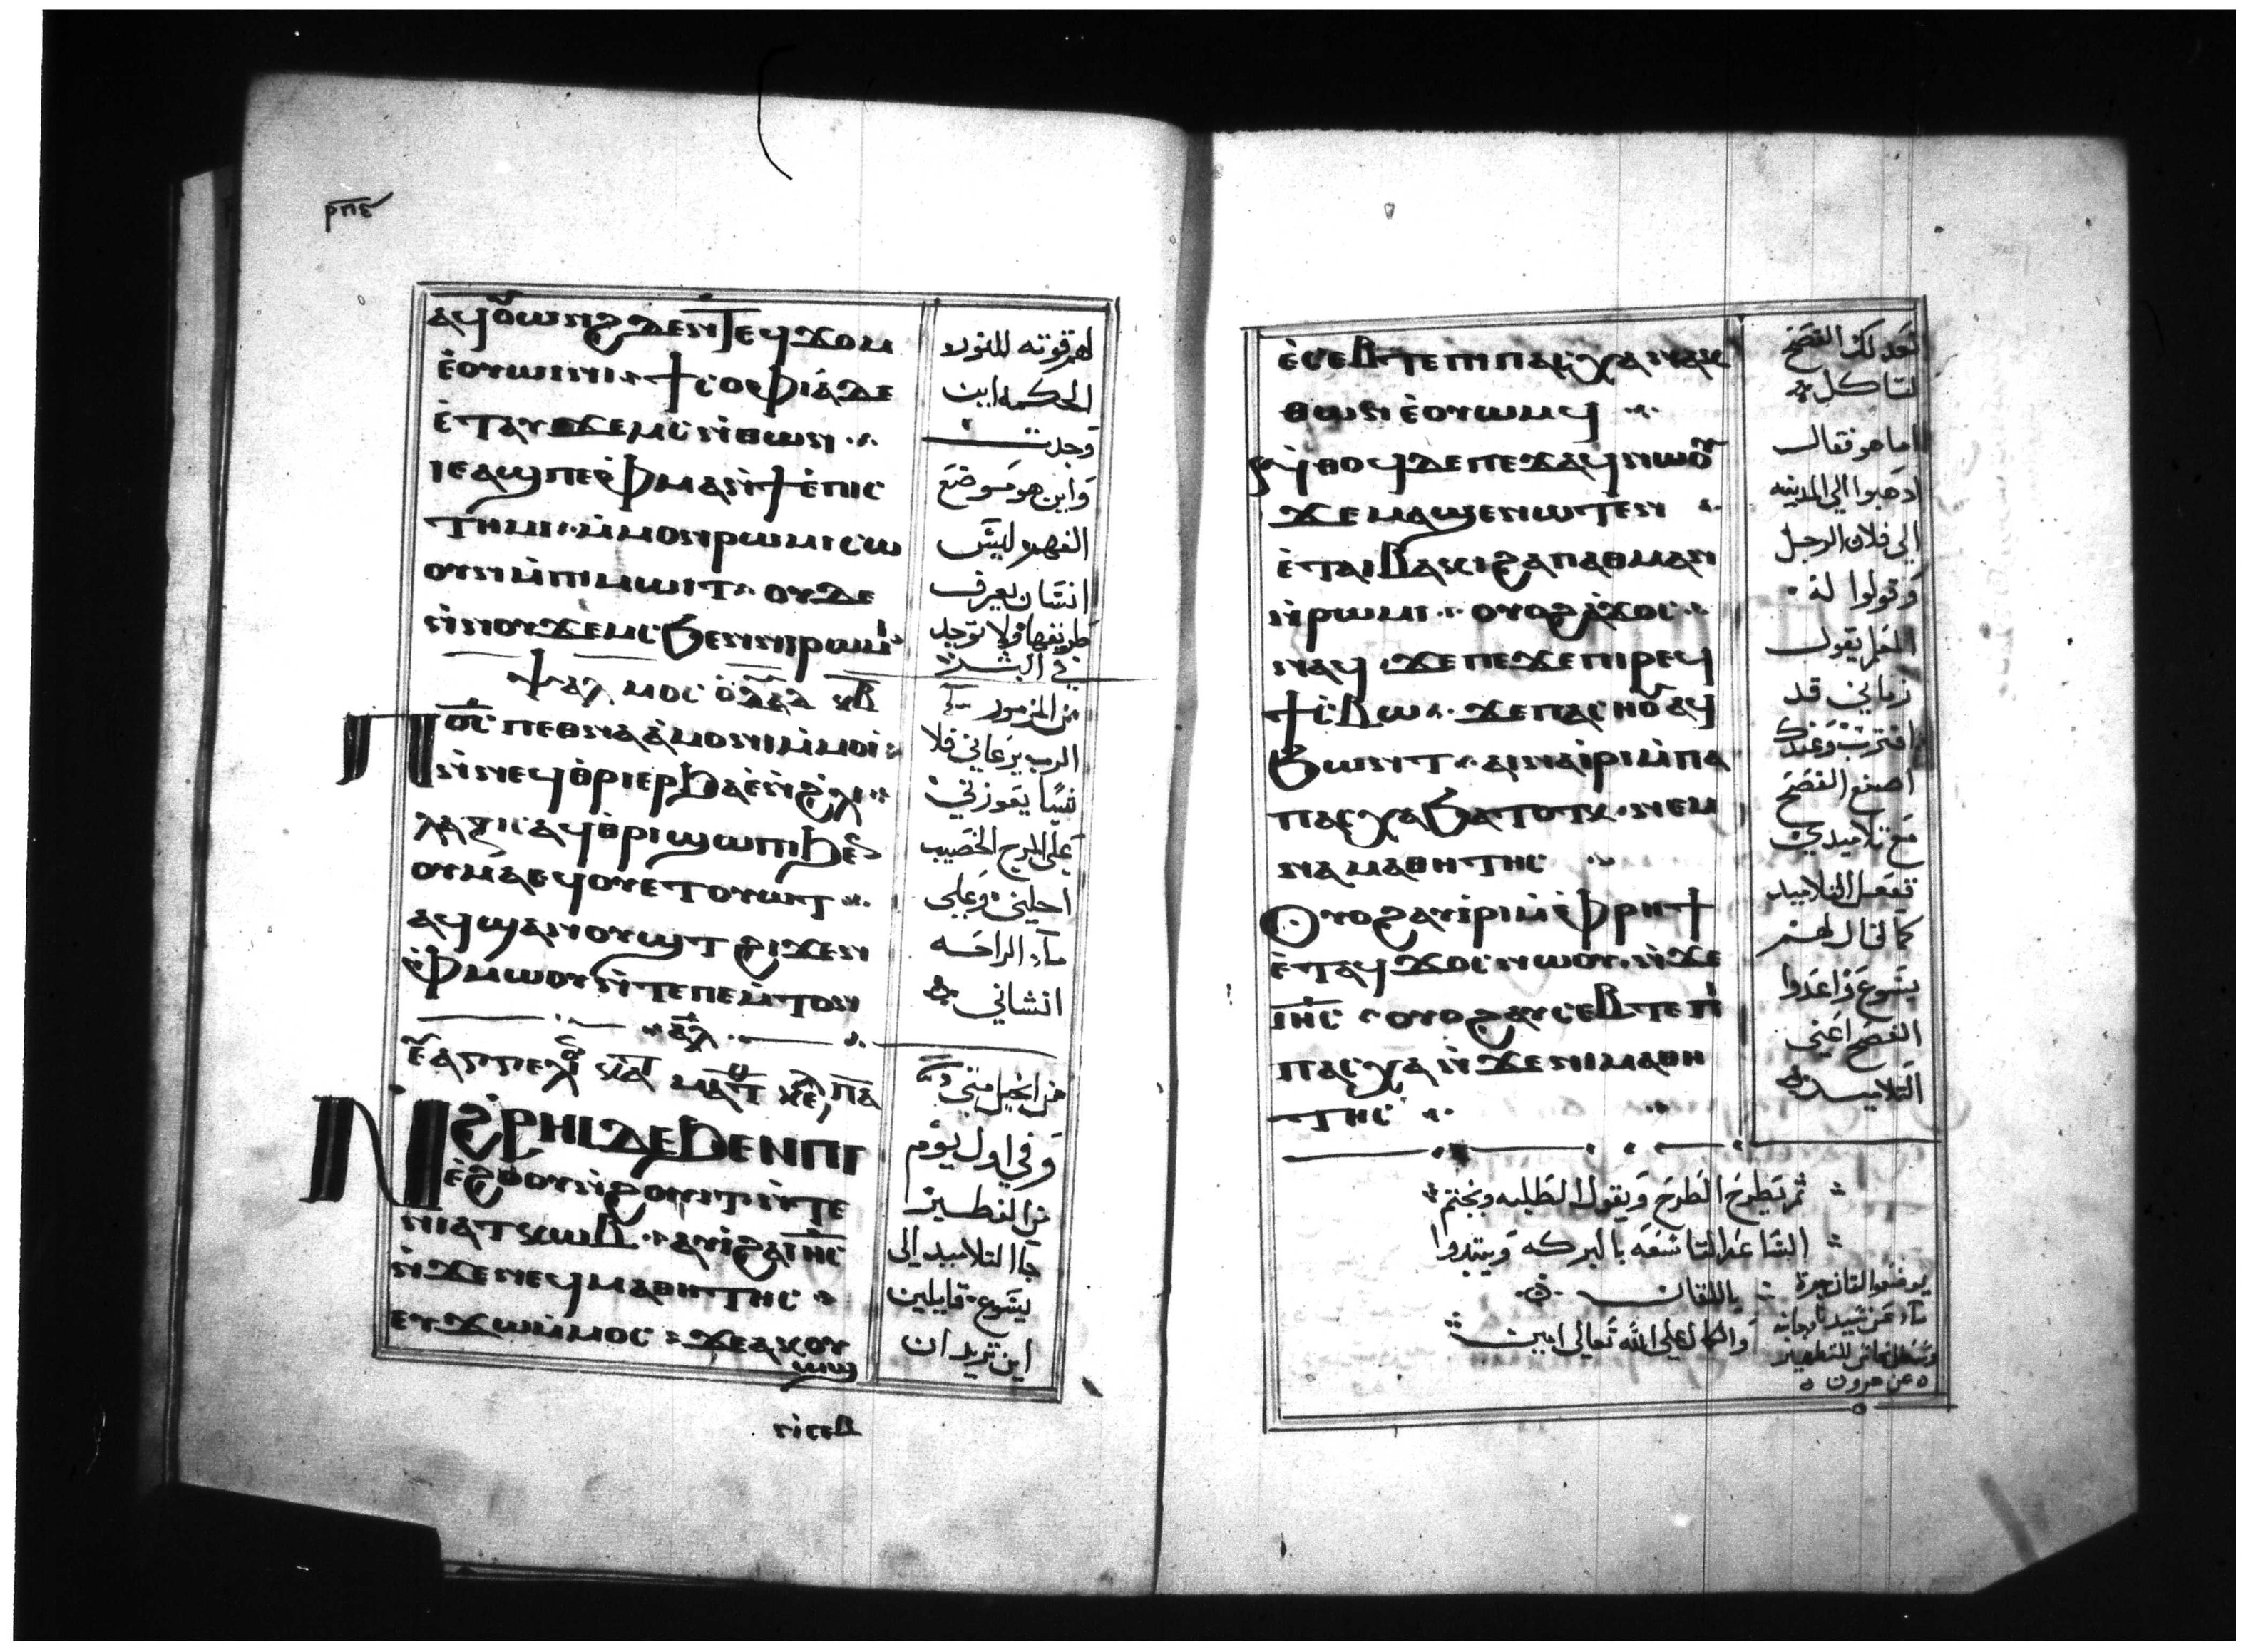 ⲣⲡⲋ
ⲁϥⲟⲩⲱⲛϩ ⲇⲉ ⲛⲧⲉϥϫⲟⲙ
ⲉⲟⲩⲱⲓⲛⲓ ϯⲥⲟⲫⲓⲁ ⲇⲉ
ⲉⲧⲁⲩϫⲉⲙⲥ ⲛⲑⲱⲛ
ⲓⲉ ⲁϣ ⲡⲉ ⲫⲙⲁ ⲛϯⲉⲡⲓⲥ
ⲧⲏⲙⲓ ⲙⲙⲟⲛ ⲣⲱⲙⲓ ⲥⲱ
ⲟⲩⲛ ⲙⲡⲓⲙⲱⲓⲧ ⲟⲩⲇⲉ
ⲛⲛⲟⲩϫⲉⲙⲥ ϧⲉⲛ ⲛⲓⲣⲱⲙⲓ
ⲯⲁⲗⲙⲟⲥ ⲕⲃ
ⲡⲟ̅ⲥ̅ ⲡⲉⲑⲛⲁⲁⲙⲟⲛⲓ ⲙⲙⲟⲓ
ⲛⲛⲉϥⲑⲣⲓⲉⲣϧⲁⲉ ⲛϩⲗⲓ
ⲁϥⲑⲣⲓϣⲱⲡⲓ ϧⲉⲛ
ⲟⲩⲙⲁ ⲉϥⲟⲩⲉⲧⲟⲩⲱⲧ
ⲁϥϣⲁⲛⲟⲩϣⲧ ϩⲓϫⲉⲛ
ⲫⲙⲱⲟⲩ ⲛⲧⲉ ⲡⲉⲙⲧⲟⲛ
ⲁⲗ
ⲛϩⲣⲏⲓ ⲇⲉ ϧⲉⲛ ⲡⲓ
ⲉϩⲟⲟⲩ ⲛϩⲟⲩⲓⲧ ⲛⲧⲉ
ⲛⲓⲁⲧⲕⲱⲃ ⲁⲩⲓ ϩⲁ ⲓ̅ⲏ̅ⲥ̅
ⲛϫⲉ ⲛⲉϥⲙⲁⲑⲏⲧⲏⲥ
ⲉⲩϫⲱ ⲙⲙⲟⲥ ϫⲉ ⲁⲕⲟⲩ
ⲱϣ
ⲛⲓⲥⲉⲃ
لهم قوته للنور
الحكمة اين
وجدت
واين هو موضع
الفهم ليس
انسان يعرف
طريقها ولا توجد
في البشر
من المزمور
الرب يرعاني فلا
شيا يعوزني
علي المرج الخصيب
احلني وعلي
ماء الراحه
انشاني
من انجيل متي
وفي اول يوم
من الفطير
جا التلاميد الي
يسوع قايلين
اين تريد ان
ⲉⲥⲉⲃⲧⲉ ⲡⲓⲡⲁⲥⲭⲁ ⲛⲁⲕ
ⲑⲱⲛ ⲉⲟⲩⲱⲙϥ
ⲛⲑⲟϥ ⲇⲉ ⲡⲉϫⲁϥ ⲛⲱⲟⲩ
ϫⲉ ⲙⲁϣⲉⲛⲱⲧⲉⲛ
ⲉⲧⲁⲓⲃⲁⲕⲓ ϩⲁ ⲡⲁⲑⲙⲁⲛ
ⲛⲣⲱⲙⲓ ⲟⲩⲟϩ ⲁϫⲟⲥ
ⲛⲁϥ ϫⲉ ⲡⲉϫⲉ ⲡⲓⲣⲉϥ
ϯⲥⲃⲱ ϫⲉ ⲡⲁⲥⲏⲟⲩ ⲁϥ
ϧⲱⲛⲧ ⲁⲓⲛⲁⲓⲣⲓ ⲙⲡⲁ
ⲡⲁⲥⲭⲁ ϧⲁⲧⲟⲧⲕ ⲛⲉⲙ
ⲛⲁⲙⲁⲑⲏⲧⲏⲥ
ⲟⲩⲟϩ ⲁⲩⲓⲣⲓ ⲙⲫⲣⲏϯ
ⲉⲧⲁϥϫⲟⲥ ⲛⲱⲟⲩ ⲛϫⲉ
ⲓ̅ⲏ̅ⲥ̅ ⲟⲩⲟϩ ⲁⲩⲥⲉⲃⲧⲉ ⲡⲓ
ⲡⲁⲥⲭⲁ ⲛϫⲉ ⲛⲓⲙⲁⲑⲏ
ⲧⲏⲥ
نعد لك الفصح
لتاكل
اما هو فقال
ادهبوا الي المدينه
الي فلان الرجل
وقولوا له
المعلم يقول
زماني قد
اقترب وعندك
اصنع الفصح
مع تلاميدي
ففعل التلاميد
كما قال لهم
يسوع واعدوا
الفصح اعني
التلاميد
ثم يطرح الطرح ويقول الطلبه ويختم
الساعه التاسعه بالبركه ويبتدوا
باللقان
والكمال لله تعالي امين